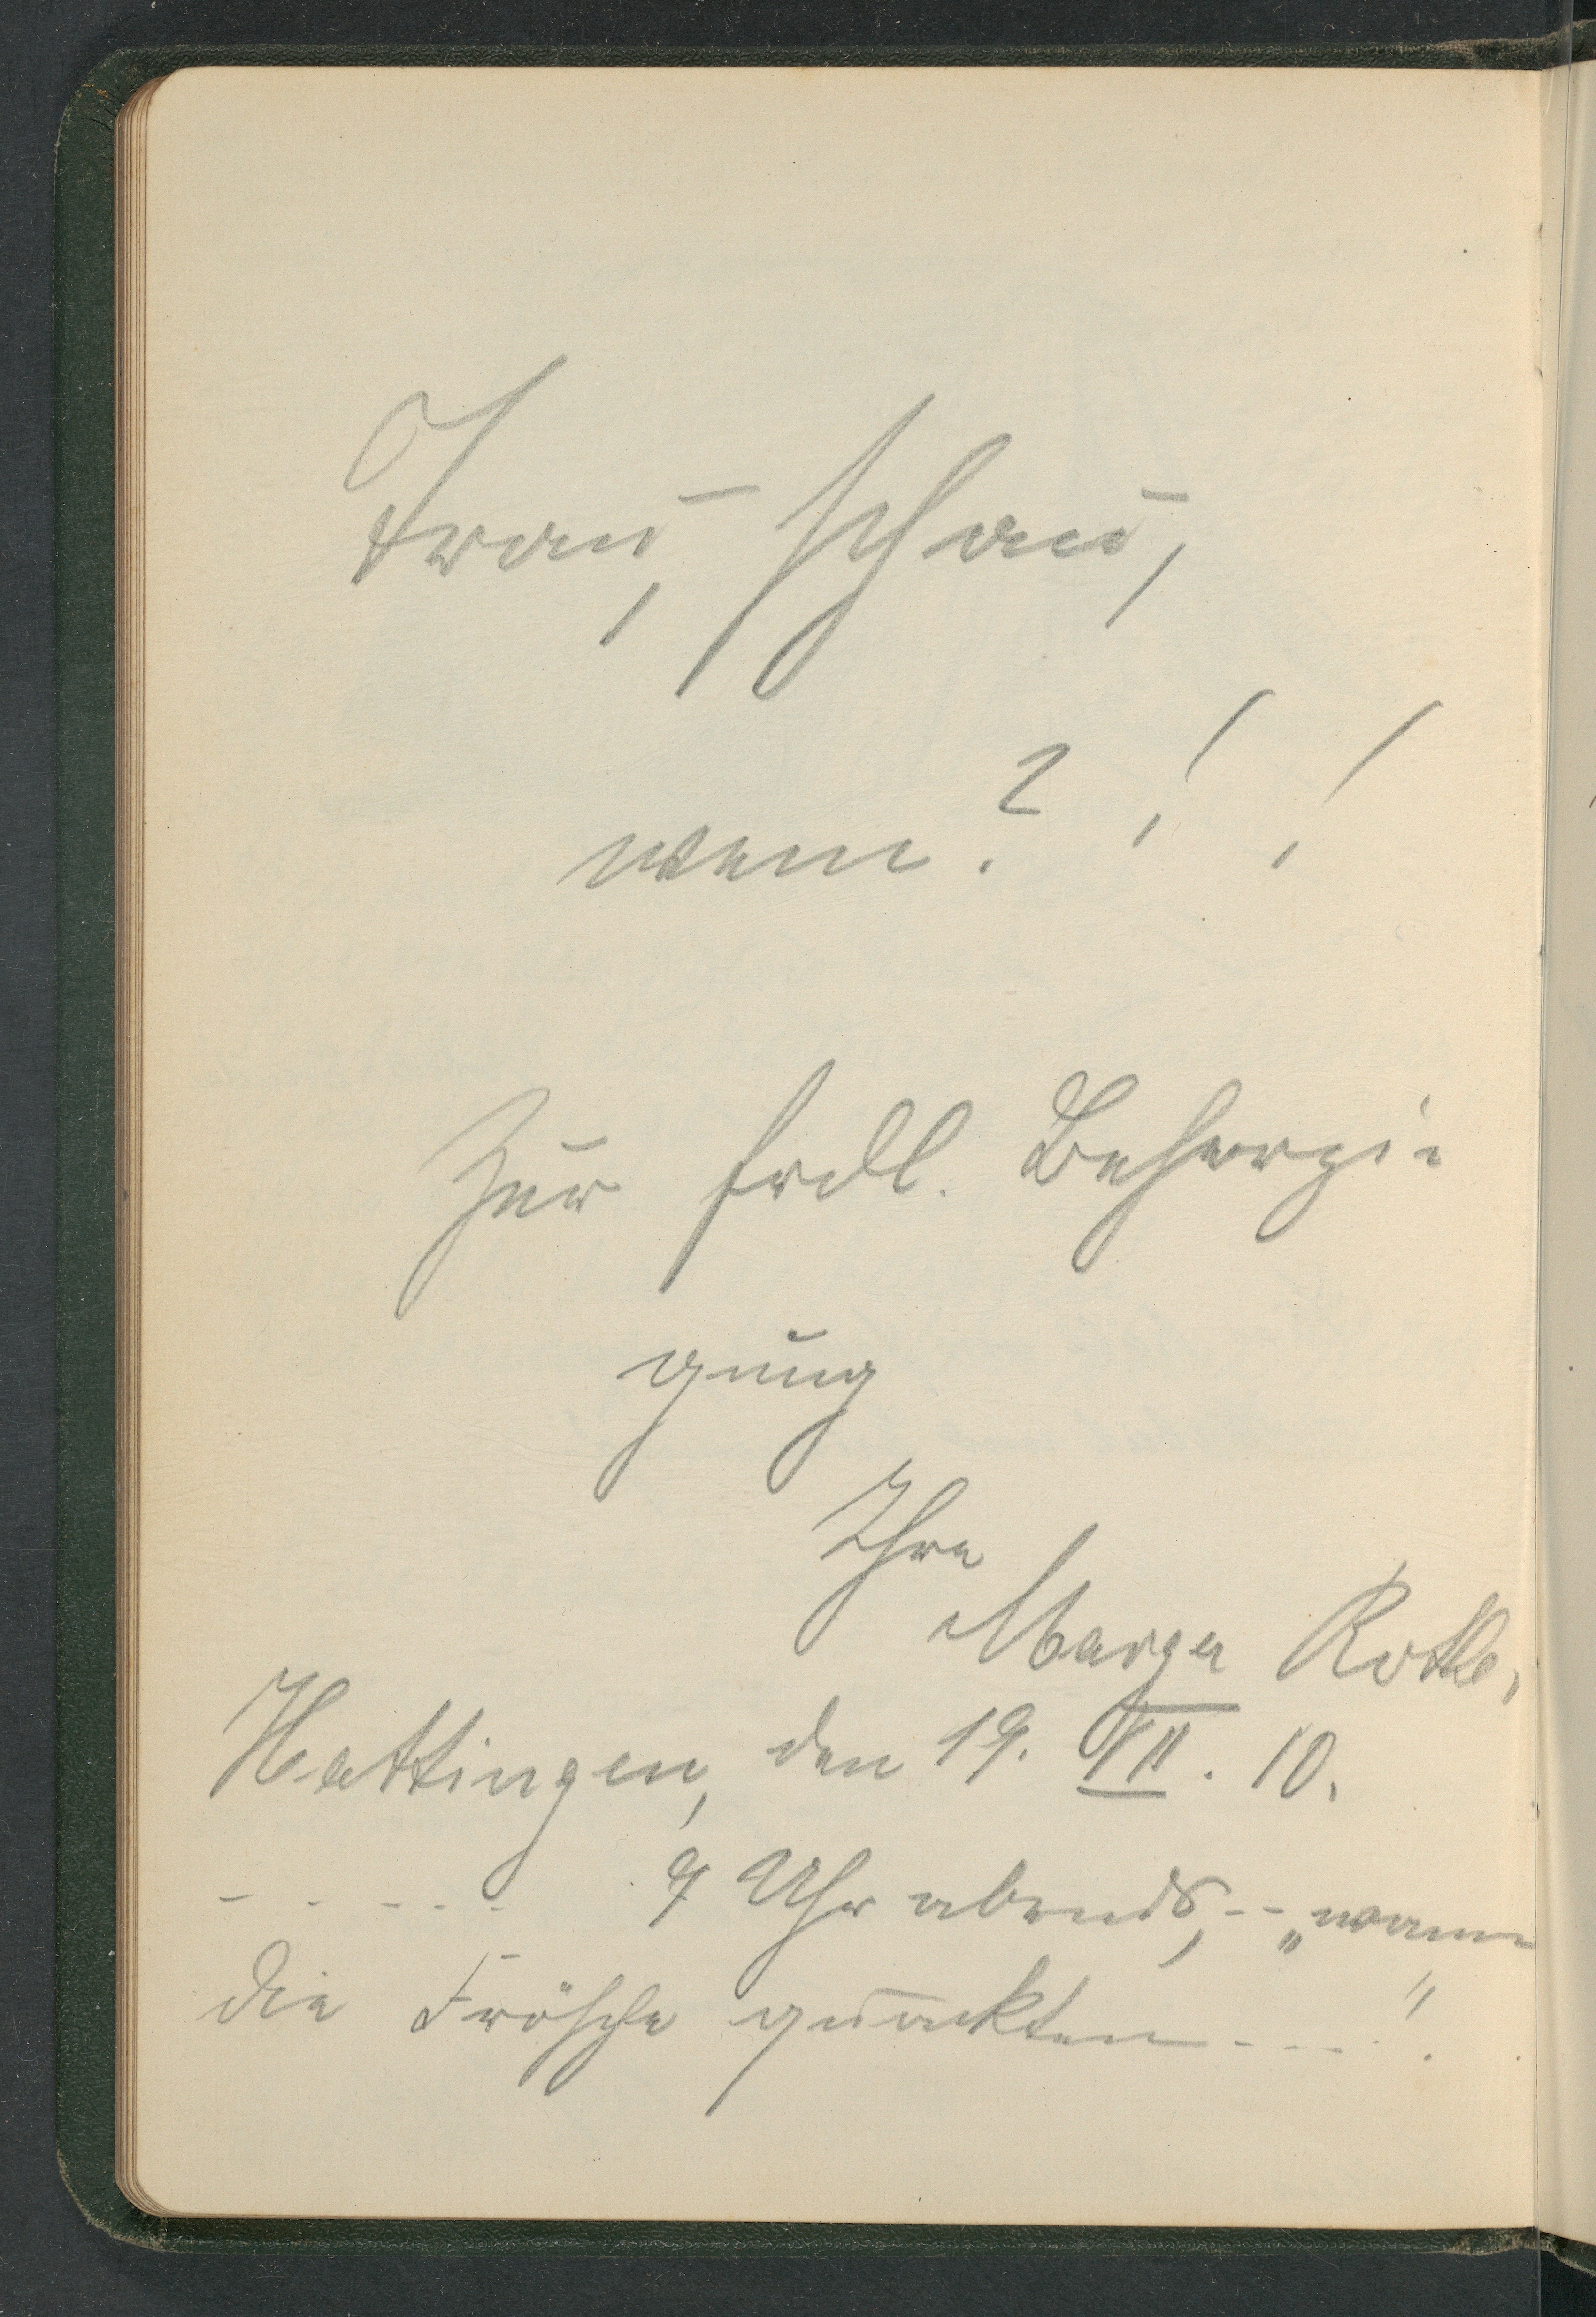 Trau, schau,
wem?!!
Zur frdl. Beherzi-
gung
Ihre
Marga Rothe,
Hattingen, den 19. VII. 10.
- - - - - 9 Uhr abends, -- „wenn
die Frösche quackten - - - !"